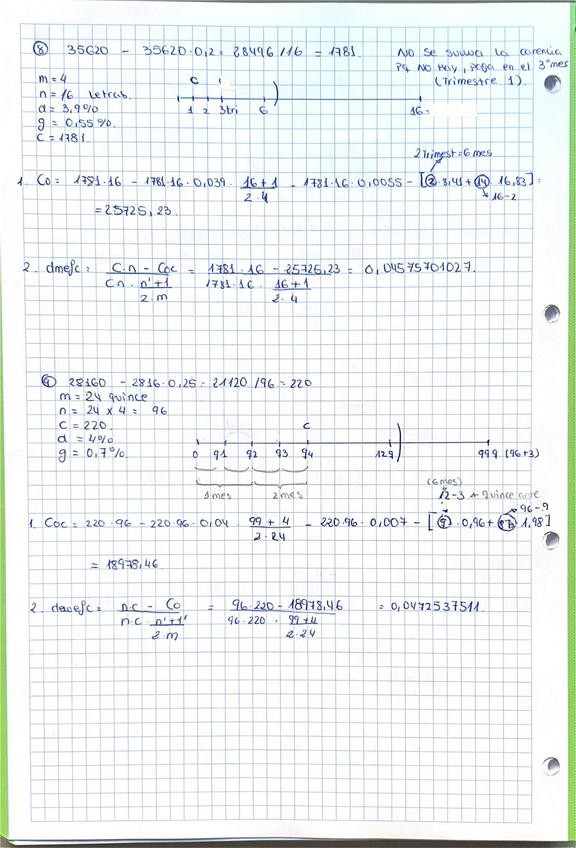 ⑧ 35620 - 35620·0,2 = 28496/16 = 1781.
No se suma la carencia
pq No Hay, paga en el 3ºmes
(Trimestre 1).
m = 4
n = 16 letras.
d = 3,9%
g = 0,55%.
c = 1781.
C
1 2 3tri 6 16
2 Trimest = 6 mes
1. Co = 1781·16 - 1781·16·0,039· 16+1 / 2·4 - 1781·16·0,0055 - [② · 8,41 + ⑭ · 16,83] =
16-2
= 25725,23.
2. dmefc = C·n - Coc / Cn · n'+1 / 2·m = 1781·16 - 25725,23 / 1781·16 · 16+1 / 2·4 = 0,04575701027.
④ 28160 - 2816·0,25 = 21120/96 = 220
m = 24 quince
n = 24 x 4 = 96
c = 220.
d = 4%
g = 0,7%.
C
0 91 92 93 94 129 999 (96+3)
1mes 2mes
(6mes)
12-3 → Quince ante
96-9
1. Coc = 220·96 - 220·96·0,04 99+4 / 2·24 - 220·96·0,007 - [⑨ · 0,96 + 87 · 1,98]
= 18978,46
2. = n·c - Co / n·c · n'+1' / 2·m = 96·220 - 18978,46 / 96·220 · 99+4 / 2·24 = 0,0472537511.